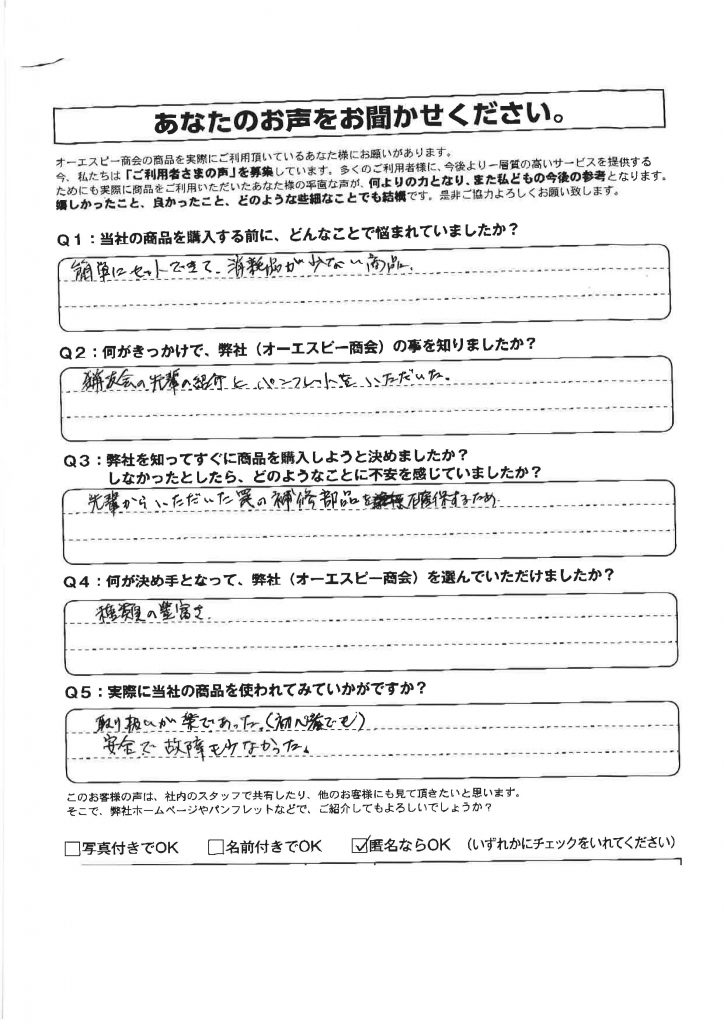 あなたのお声をお聞かせください。
オーエスピー商会の商品を実際にご利用頂いているあなた様にお願いがあります。
今、私たちは「ご利用者さまの声」を募集しています。多くのご利用者様に、今後より一層質の高いサービスを提供する
ためにも実際に商品をご利用いただいたあなた様の率直な声が、何よりの力となり、また私どもの今後の参考となります。
嬉しかったこと、良かったこと、どのような些細なことでも結構です。是非ご協力よろしくお願い致します。
Q1：当社の商品を購入する前に、どんなことで悩まれていましたか？
簡単にセットできて、消耗品が少ない商品。
Q2：何がきっかけで、弊社（オーエスピー商会）の事を知りましたか？
猟友会の先輩の紹介とパンフレットをいただいた。
Q3：弊社を知ってすぐに商品を購入しようと決めましたか？
しなかったとしたら、どのようなことに不安を感じていましたか？
先輩からいただいた罠の補修部品を確保するため
Q4：何が決め手となって、弊社（オーエスピー商会）を選んでいただけましたか？
種類の豊富さ
Q5：実際に当社の商品を使われてみていかがですか？
取り扱いが楽であった。（初心者でも）
安全で故障も少なかった。
このお客様の声は、社内のスタッフで共有したり、他のお客様にも見て頂きたいと思います。
そこで、弊社ホームページやパンフレットなどで、ご紹介してもよろしいでしょうか？
□写真付きでOK □名前付きでOK ☑匿名ならOK （いずれかにチェックをいれてください）